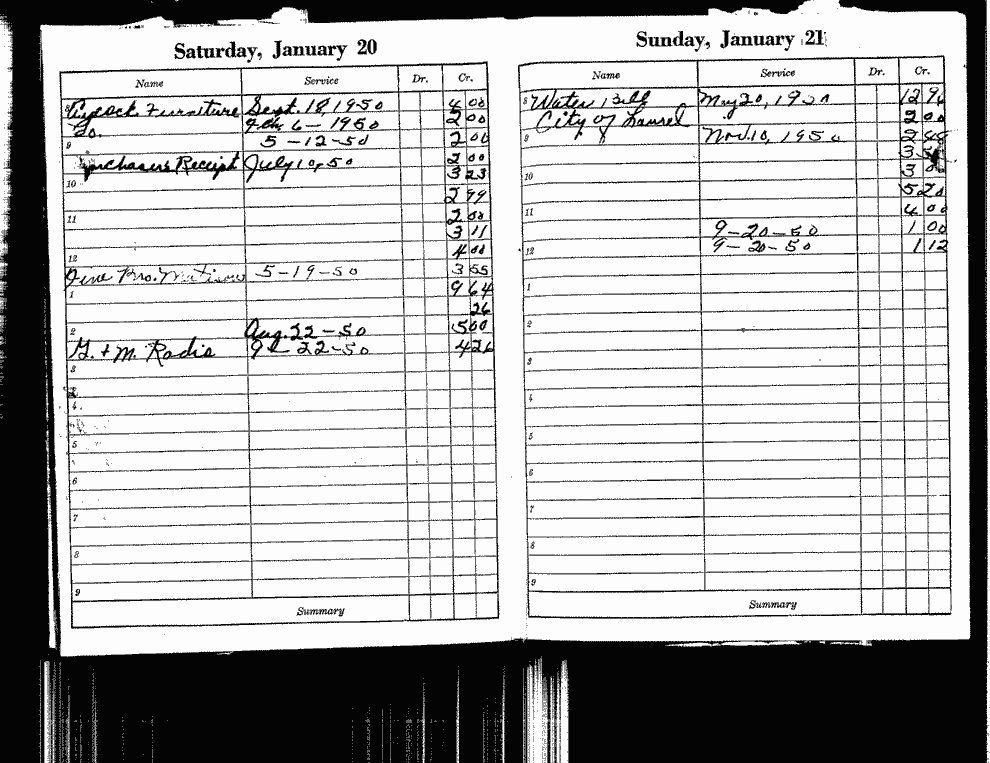 Saturday, January 20
Name Service Dr. Cr.
8 Furniture Sept. 18, 1950 4 00
Co. 6 - 1950 2 00
9 5 - 12 - 50 2 00
Purchasers Receipt July 10, 50 2 00
10 3 23
2 99
11 2 00
3 11
12 4 00
Bro. 5 - 19 - 50 3 55
1 9 64
26
2 Aug. 22 - 50 5 00
G. & M. Radio 9 - 22 - 50 4 26
3
4
5
6
7
8
9
Summary
Sunday, January 21
Name Service Dr. Cr.
8 Water Bill May 20, 1950 12 96
City of Laurel 2 00
9 Nov. 10, 1950 2 48
3
10 3 00
5 20
11 4 00
9 - 20 - 50 1 00
12 9 - 20 - 50 1 12
1
2
3
5
6
7
8
9
Summary